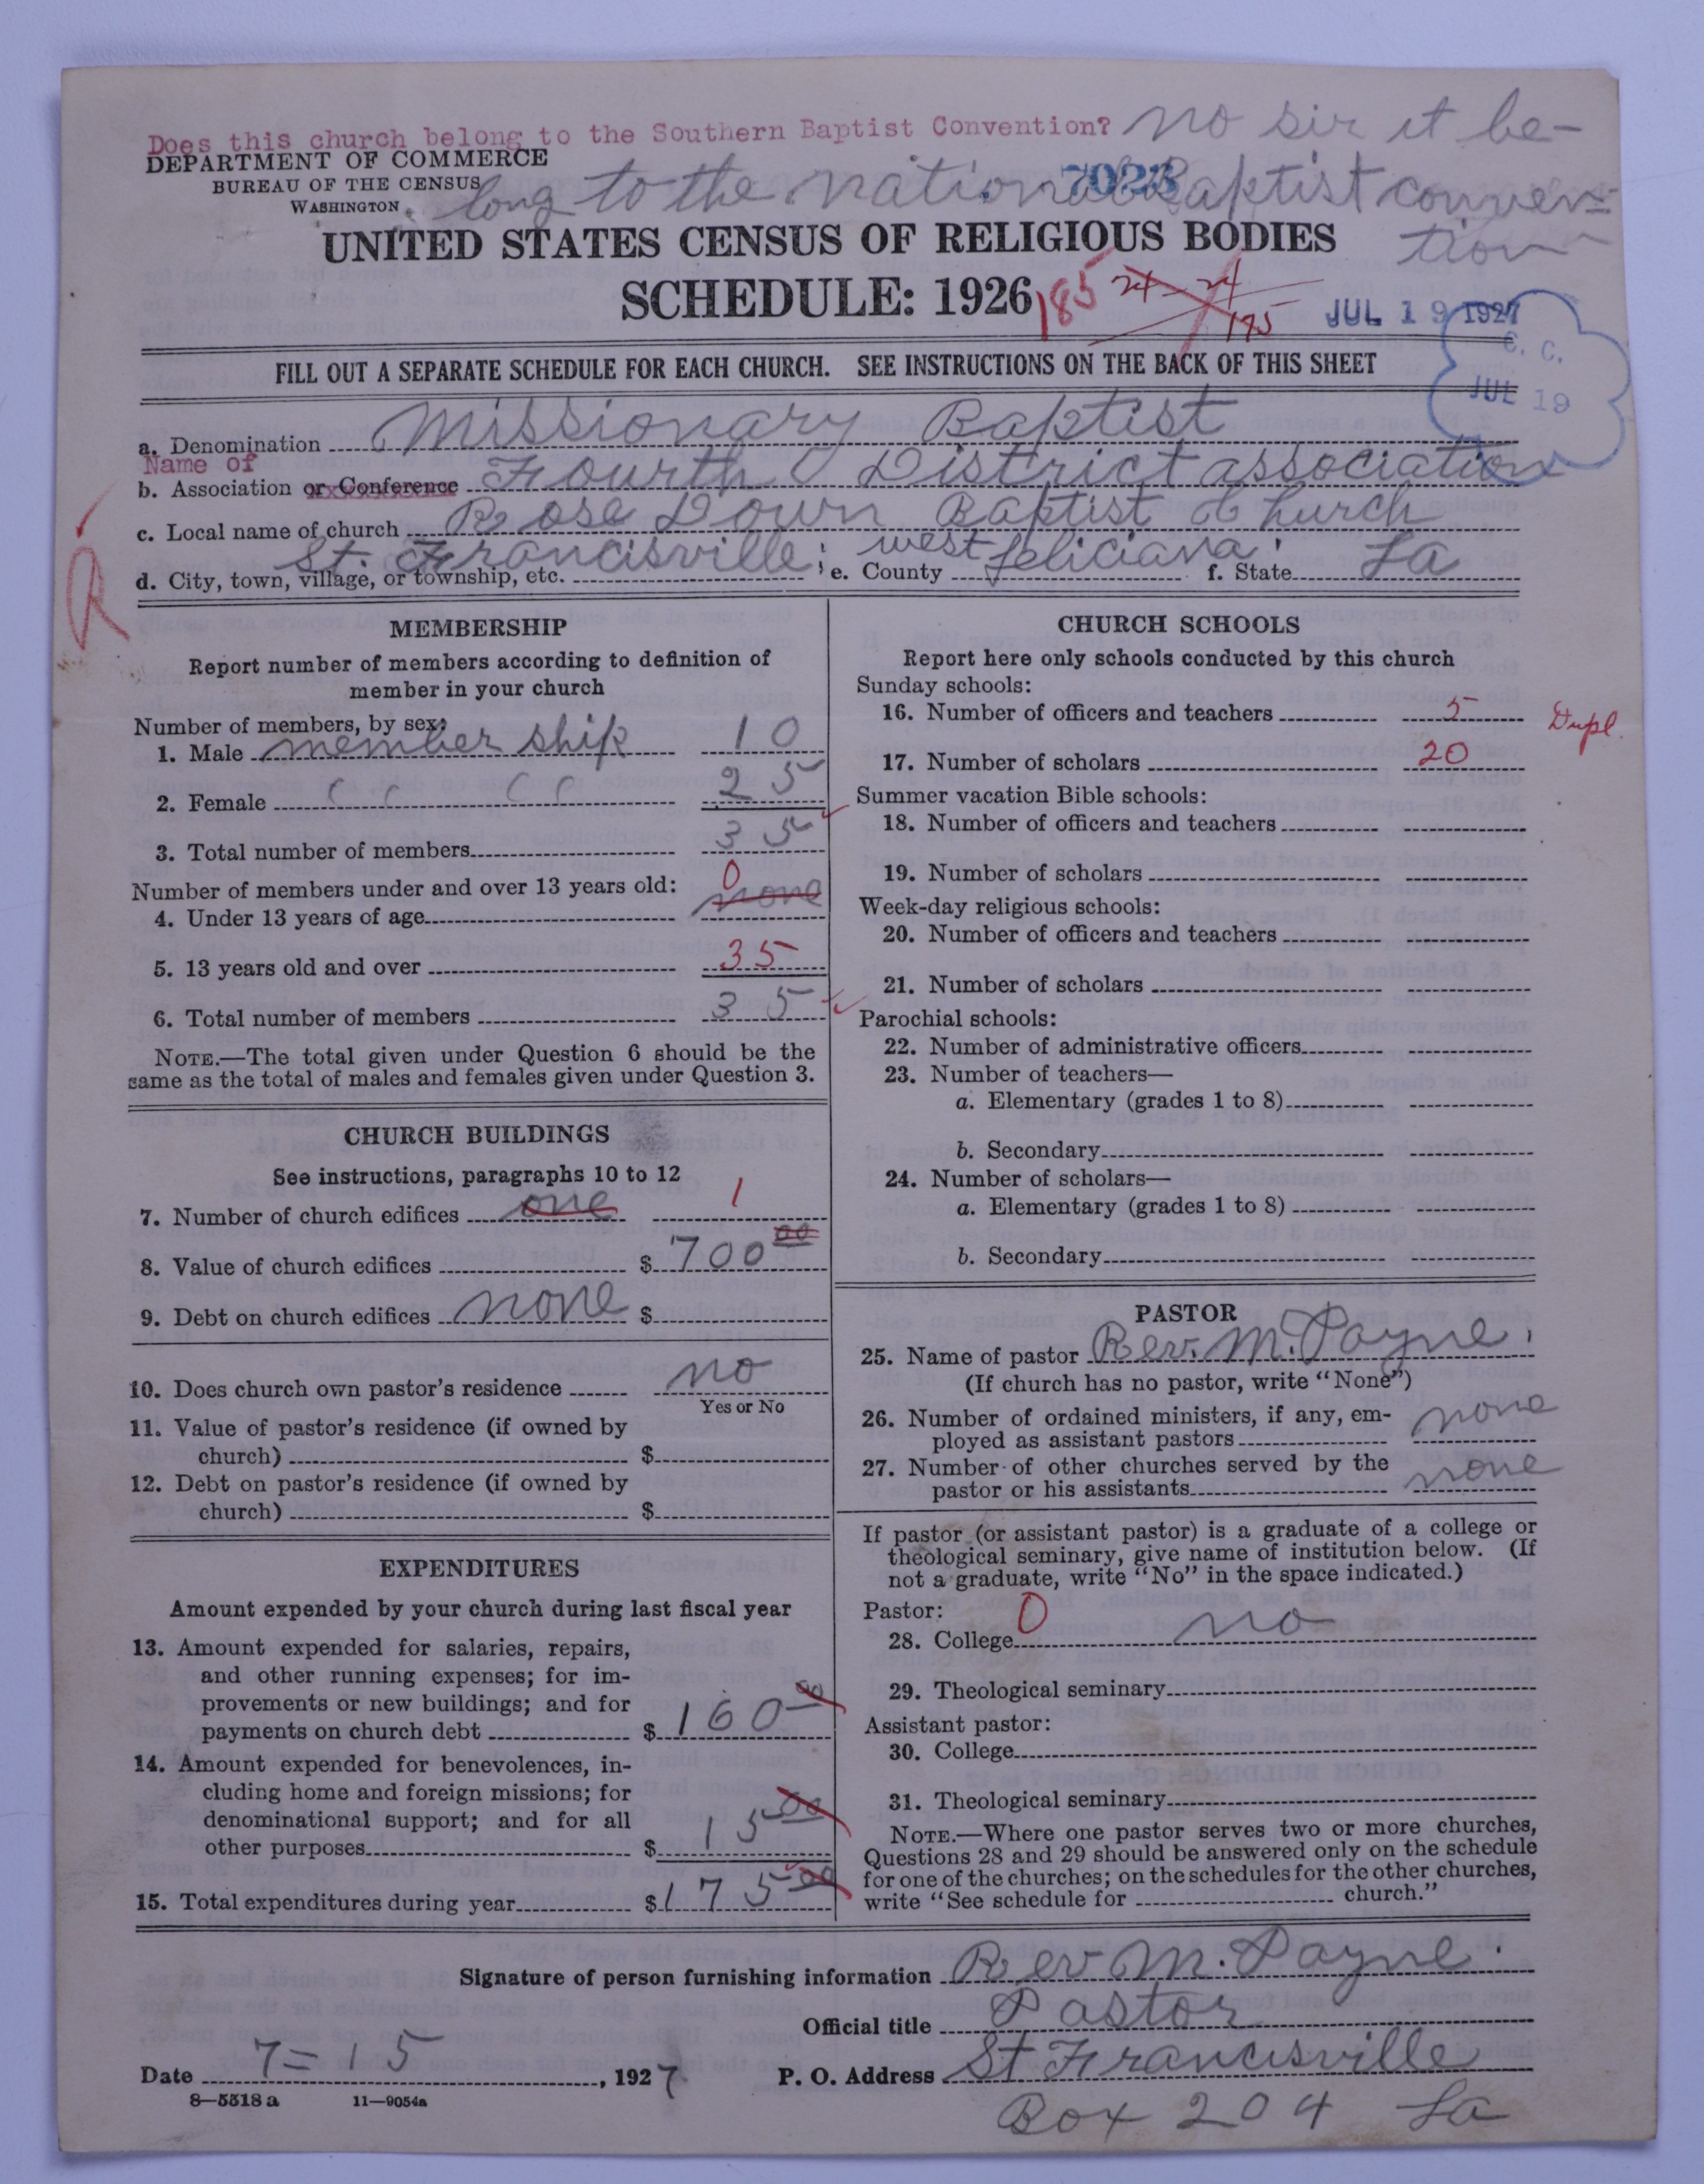 Does this church belong to the Southern Baptist Convention? no sir it be-
DEPARTMENT OF COMMERCE
BUREAU OF THE CENSUS
WASHINGTON
long to the national Baptist conven-
tion
7023
UNITED STATES CENSUS OF RELIGIOUS BODIES
SCHEDULE: 1926
185 24-24
195
JUL 19 1927
C. C.
JUL 19
FILL OUT A SEPARATE SCHEDULE FOR EACH CHURCH. SEE INSTRUCTIONS ON THE BACK OF THIS SHEET
a. Denomination Missionary Baptist
Name of
b. Association or Conference Fourth District association
c. Local name of church Rose Down Baptist Church
d. City, town, village, or township, etc. St. Francisville; e. County west feliciana; f. State La
R
MEMBERSHIP
Report number of members according to definition of
member in your church
Number of members, by sex:
1. Male member ship 10
2. Female " " 25
3. Total number of members 35
Number of members under and over 13 years old:
4. Under 13 years of age none 0
5. 13 years old and over 35
6. Total number of members 35
NOTE.—The total given under Question 6 should be the
same as the total of males and females given under Question 3.
CHURCH BUILDINGS
See instructions, paragraphs 10 to 12
7. Number of church edifices one 1
8. Value of church edifices $ 700 00
9. Debt on church edifices none $
10. Does church own pastor's residence no
Yes or No
11. Value of pastor's residence (if owned by
church) $
12. Debt on pastor's residence (if owned by
church) $
EXPENDITURES
Amount expended by your church during last fiscal year
13. Amount expended for salaries, repairs,
and other running expenses; for im-
provements or new buildings; and for
payments on church debt $ 160 00
14. Amount expended for benevolences, in-
cluding home and foreign missions; for
denominational support; and for all
other purposes $ 15 00
15. Total expenditures during year $ 175 00
CHURCH SCHOOLS
Report here only schools conducted by this church
Sunday schools:
16. Number of officers and teachers 5 Dupl.
17. Number of scholars 20
Summer vacation Bible schools:
18. Number of officers and teachers
19. Number of scholars
Week-day religious schools:
20. Number of officers and teachers
21. Number of scholars
Parochial schools:
22. Number of administrative officers
23. Number of teachers—
a. Elementary (grades 1 to 8)
b. Secondary
24. Number of scholars—
a. Elementary (grades 1 to 8)
b. Secondary
PASTOR
25. Name of pastor Rev. M. Payne.
(If church has no pastor, write "None")
26. Number of ordained ministers, if any, em-
ployed as assistant pastors none
27. Number of other churches served by the
pastor or his assistants none
If pastor (or assistant pastor) is a graduate of a college or
theological seminary, give name of institution below. (If
not a graduate, write "No" in the space indicated.)
Pastor: 0
28. College no
29. Theological seminary
Assistant pastor:
30. College
31. Theological seminary
NOTE.—Where one pastor serves two or more churches,
Questions 28 and 29 should be answered only on the schedule
for one of the churches; on the schedules for the other churches,
write "See schedule for church."
Signature of person furnishing information Rev M. Payne.
Official title Pastor
Date 7=15, 1927 P. O. Address St Francisville
8—5518 a 11—9054a
Box 204 La